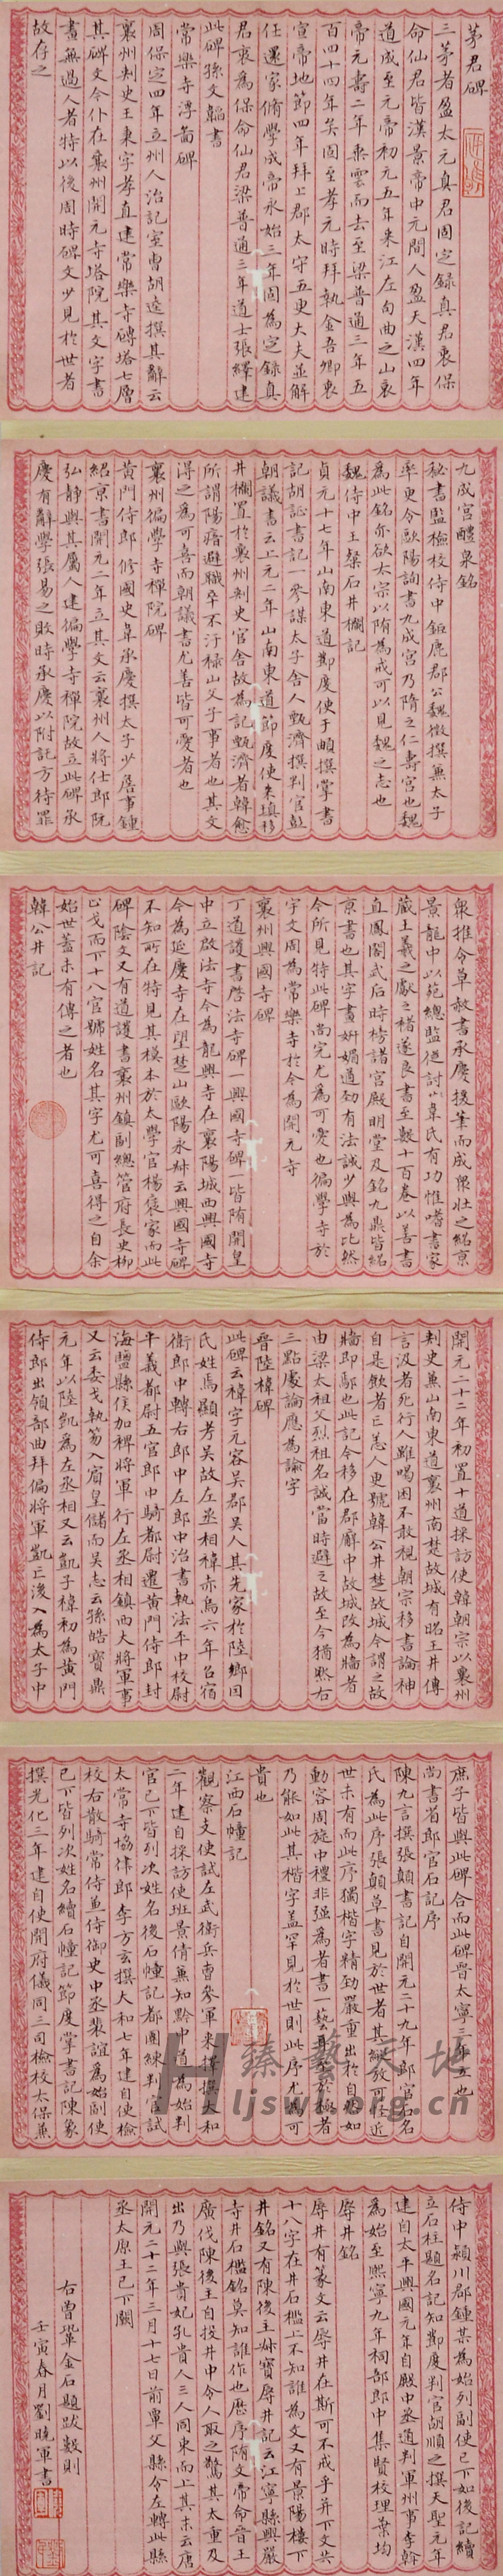 茅君碑
三茅者盈太元真君固定録真君衷保
命仙君皆漢景帝中元間人盈天漢四年
道成至元帝初元五年来江左句曲之山哀
帝元壽二年乘雲而去至梁普通三年五
百四十四年矣固至孝元時拜執金吾卿衷
宣帝地節四年拜上郡太守五更大夫並解
任還家脩學成帝永始三年固為定録真
君衷為保命仙君梁普通三年道士張繹建
此碑孫文韜書
常樂寺浮圖碑
周保定四年立州人治記室曹胡逵撰其辭云
襄州刺史王秉字孝直建常樂寺磚塔七層
其碑文今仆在襄州開元寺塔院其文字書
畫無過人者特以後周時碑文少見於世者
故存之
九成宮醴泉銘
秘書監檢校侍中鉅鹿郡公魏徵撰兼太子
率更令歐陽詢書九成宮乃隋之仁壽宮也魏
為此銘亦欲太宗以隋為戒可以見魏之志也
魏侍中王粲石井欄記
貞元十七年山南東道節度使于頔撰掌書
記胡証書記一參謀太子舍人甄濟撰判官彭
朝議書云上元二年山南東道節度使来瑱移
井欄置於襄州刺史官舍故為記甄濟者韓愈
所謂陽瘖避職卒不汙祿山父子事者也其文
得之為可喜而朝議書尤善皆可愛者也
襄州徧學寺禪院碑
黄門侍郎修國史韋承慶撰太子少詹事鍾
紹京書開元二年立其文云襄州人將仕郎阮
弘静與其屬人建徧學寺禪院故立此碑承
慶有辭學張易之敗時承慶以附託方待罪
衆推令草赦書承慶援筆而成衆壯之紹京
景龍中以苑總監從討韋氏有功惟嗜書家
藏王羲之獻之禇遂良書至數十百卷以善書
直鳳閣武后時榜諸宮殿明堂及銘九鼎皆紹
京書也其字畫妍媚遒勁有法誠少與為比然
今所見特此碑尚完尤為可愛也徧學寺於
宇文周為常樂寺於今為開元寺
襄州興國寺碑
丁道護書啓法寺碑一興國寺碑一皆隋開皇
中立啟法寺今為龍興寺在襄陽城西興國寺
今為延慶寺在望楚山歐陽永叔云興國寺碑
不知所在特見其模本於太學官楊褒家而此
碑陰文又有道護書襄州鎮副總管府長史柳
止戈而下十八官號姓名其字尤可喜得之自余
始世蓋未有傳之者也
韓公井記
開元二十二年初置十道採訪使韓朝宗以襄州
刺史兼山南東道襄州南楚故城有昭王井傳
言汲者死行人雖暍困不敢視朝宗移書諭神
自是飲者亡恙人更號韓公井楚故城今謂之故
牆即鄢也此記今移在郡廨中故城改為牆者
由梁太祖父烈祖名誠當時避之故至今猶然右
三點處論應為諭字
晉陸禕碑
此碑云禕字元容吳郡吳人其先家於陸鄉因
氏姓焉顯考吳故左丞相禕赤烏六年召宿
衛郎中轉右郎中左郎中治書執法平中校尉
平義都尉五官郎中騎都尉遷黄門侍郎封
海鹽縣侯加裨將軍行左丞相鎮西大將軍事
又云委戈執笏入賓皇儲而吳志云孫皓寶鼎
元年以陸凱為左丞相又云凱子禕初為黄門
侍郎出領部曲拜偏將軍凱亡後入為太子中
庶子皆與此碑合而此碑晉太寧三年立也
尚書省郎官石記序
陳九言撰張顛書記自開元二十九年郎官石名
氏為此序張顛草書見於世者其縱放可怪近
世未有而此序獨楷字精勁嚴重出於自然如
動容周旋中禮非強為者書一藝耳至於極者
乃能如此其楷字蓋罕見於世則此序尤為可
貴也
江西石幢記
觀察支使試左武衛兵曹參軍来擇撰大和
二年建自採訪使班景倩兼知黔中道為始判
官已下皆列次姓名後石幢記都團練判官試
太常寺協律郎李方玄撰大和七年建自使檢
校右散騎常侍兼侍御史中丞裴誼為始副使
已下皆列次姓名續石幢記節度掌書記陳象
撰光化三年建自使開府儀同三司檢校太保兼
侍中潁川郡鍾某為始列副使已下如後記續
立石柱題名記知節度判官胡順之撰天聖元年
建自太平興國元年自殿中丞通判軍州事李幹
為始至熙寧九年祠部郎中集賢校理葉均
辱井銘
辱井有篆文云辱井在斯可不戒乎井下文共
十八字在井石檻上不知誰為文又有景陽樓下
井銘又有陳後主姝寶辱井記云江寧縣興嚴
寺井石檻銘莫知誰作也歷序隋文帝命晉王
廣伐陳後主自投井中令人取之驚其太重及
出乃與張貴妃孔貴人三人同束而上其末云唐
開元二十二年三月十七日前單父縣令左轉此縣
丞太原王已下闕
右曾鞏金石題跋數則
壬寅春月劉曉軍書
臻藝天地
Hljsww.org.cn